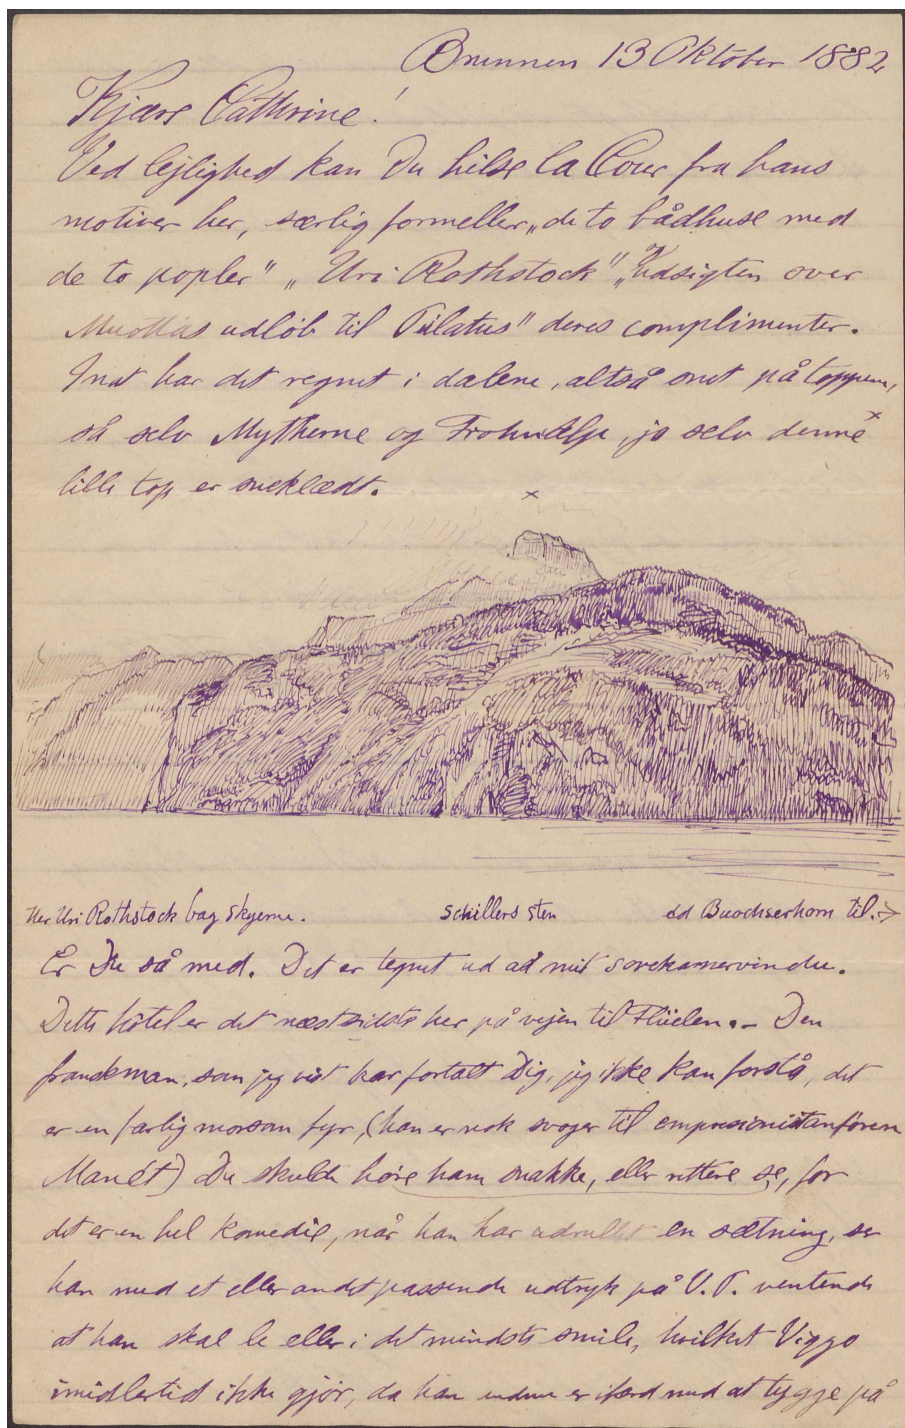 Brunnen 13 Oktober 1882
Kjære Cathrine!
Ved lejlighed kan Du hilse la Cour fra hans
motiver her, særlig formeller „de to bådhuse med
de to popler" „Uri Rothstock" „Udsigten over
Muottas udløb til Pilatus" deres complimenter.
Inat har det regnet i dalene, altså snet på toppene,
så selv Mytherne og Frohnalp, jo selv denne x
lille top er sneklædt.
x
Her Uri Rothstock bag skyerne.
Schillers sten
Buochserhorn til. →
Er Du så med. Det er tegnet ud ad mit sovekamervindu.
Dette hôtel er det næstsidste her på vejen til Flüelen. – Den
franskman, som jeg vist har fortalt Dig, jeg ikke kan forstå, det
er en farlig morsom fyr, (han er nok svoger til empresionistanføren
Manét) Du skulde høre ham snakke, eller rettere se, for
det er en hel komedie, når han har udrullet en sætning, ser
han med et eller andet passende udtryk på V. P. ventende
at han skal le eller i det mindste smile, hvilket Viggo
imidlertid ikke gjør, da han endnu er ifærd med at tygge på